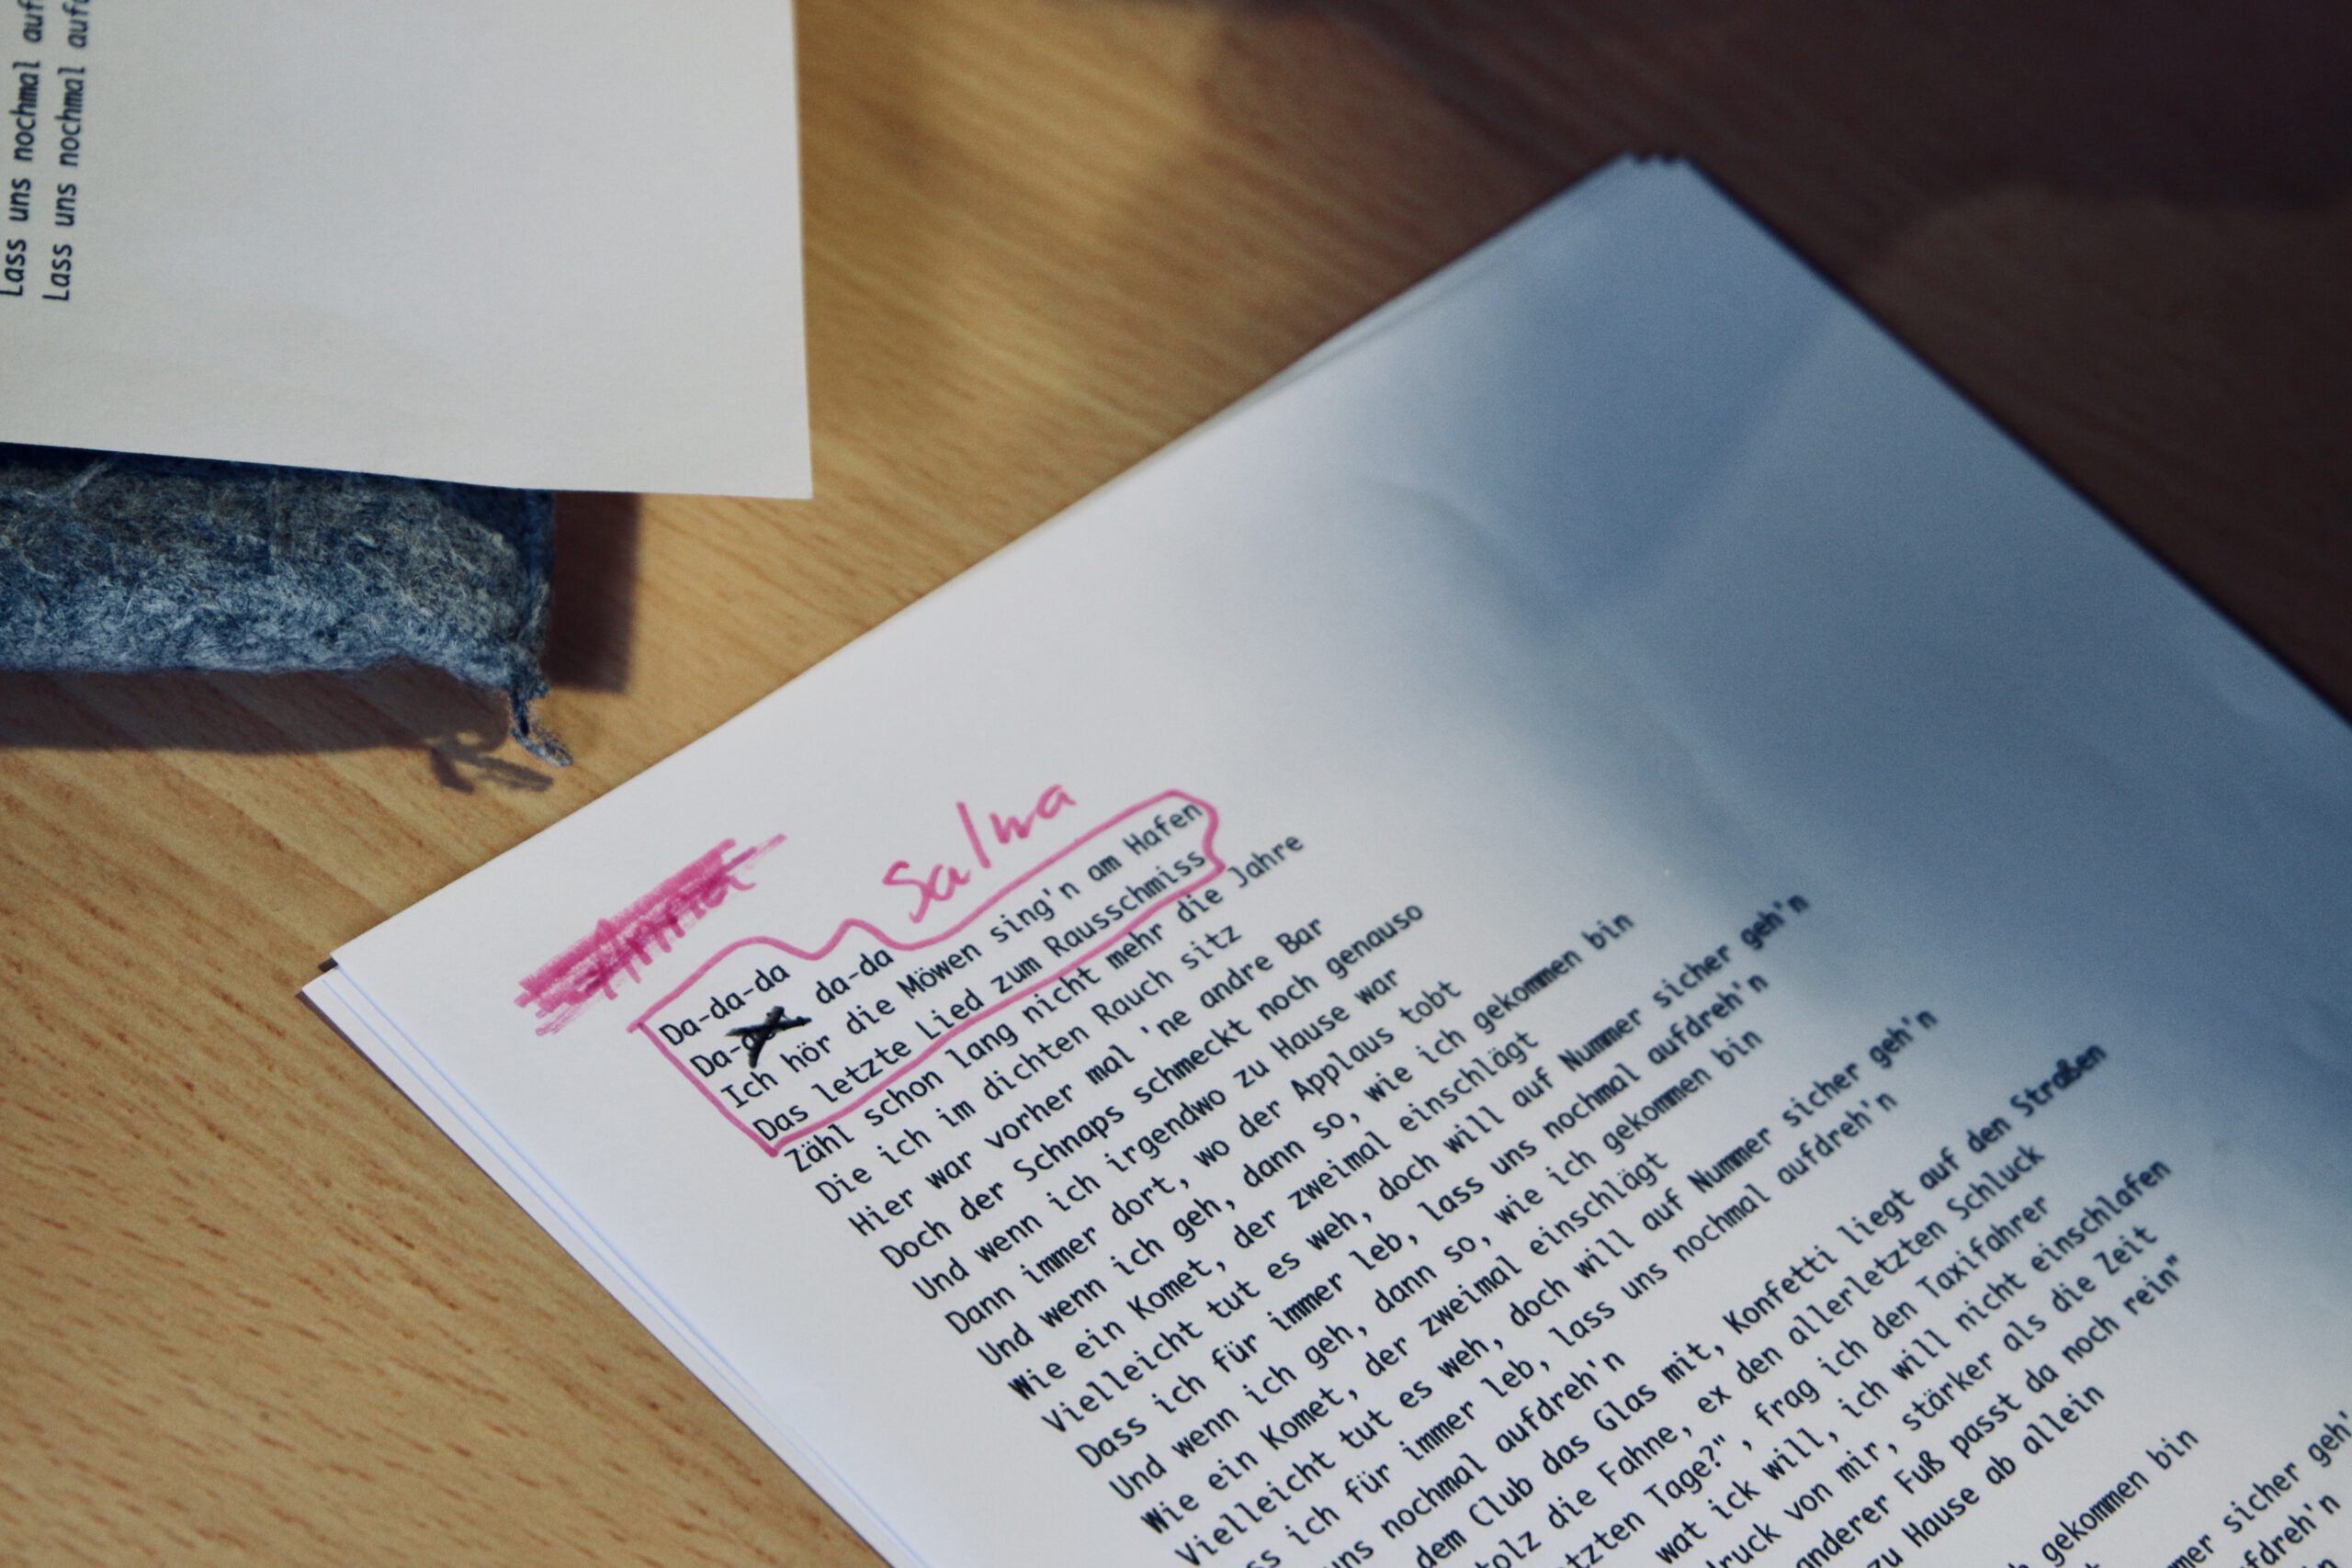 Lass uns nochmal auf
Lass uns nochmal aufd
Anna
Salwa
Da-da-da
Da-da da-da
Ich hör die Möwen sing'n am Hafen
Das letzte Lied zum Rausschmiss
Zähl schon lang nicht mehr die Jahre
Die ich im dichten Rauch sitz
Hier war vorher mal 'ne andre Bar
Doch der Schnaps schmeckt noch genauso
Und wenn ich irgendwo zu Hause war
Dann immer dort, wo der Applaus tobt
Und wenn ich geh, dann so, wie ich gekommen bin
Wie ein Komet, der zweimal einschlägt
Vielleicht tut es weh, doch will auf Nummer sicher geh'n
Dass ich für immer leb, lass uns nochmal aufdreh'n
Und wenn ich geh, dann so, wie ich gekommen bin
Wie ein Komet, der zweimal einschlägt
Vielleicht tut es weh, doch will auf Nummer sicher geh'n
ss ich für immer leb, lass uns nochmal aufdreh'n
uns nochmal aufdreh'n
dem Club das Glas mit, Konfetti liegt auf den Straßen
tolz die Fahne, ex den allerletzten Schluck
tzten Tage?", frag ich den Taxifahrer
wat ick will, ich will nicht einschlafen
druck von mir, stärker als die Zeit
anderer Fuß passt da noch rein"
zu Hause ab allein
h gekommen bin
mer sicher geh'
fdreh'n